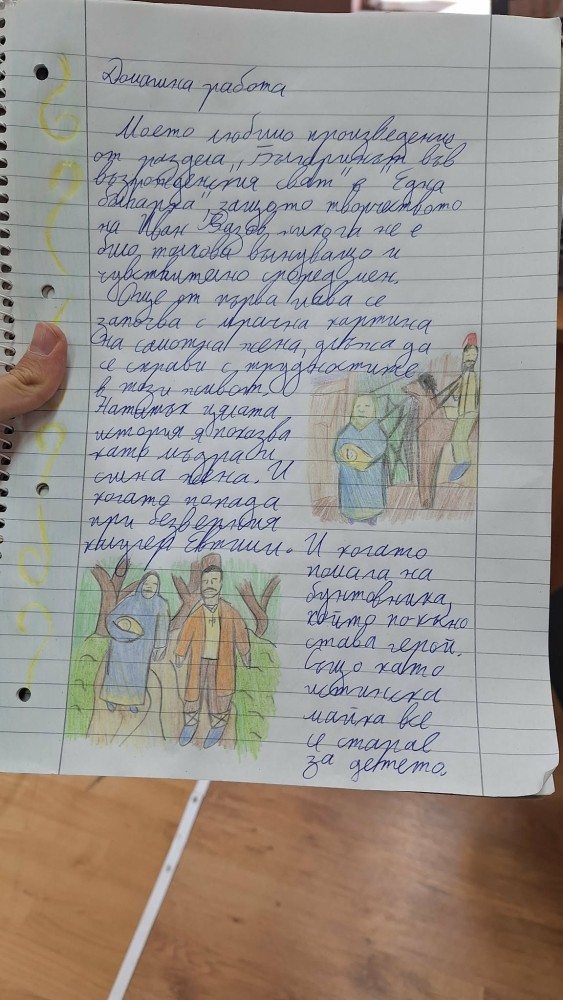 Домашна работа
Моето любимо произведение
от раздела „Българинът във
възрожденския свят" е "Една
българка", защото творчеството
на Иван Вазов никога не е
било толкова вълнуващо и
чувствително според мен.
Още от първа глава се
започва с мрачна картина
на самотна жена, длъжна да
се справи с трудностите
в този живот.
Нататък цялата
история я показва
като мъдра и
силна жена. И
когато попада
при безверния
калугер Евтимий. И когато
помага на
бунтовника,
който по-късно
става герой.
Също като
истинска
майка все
се старае
за детето.